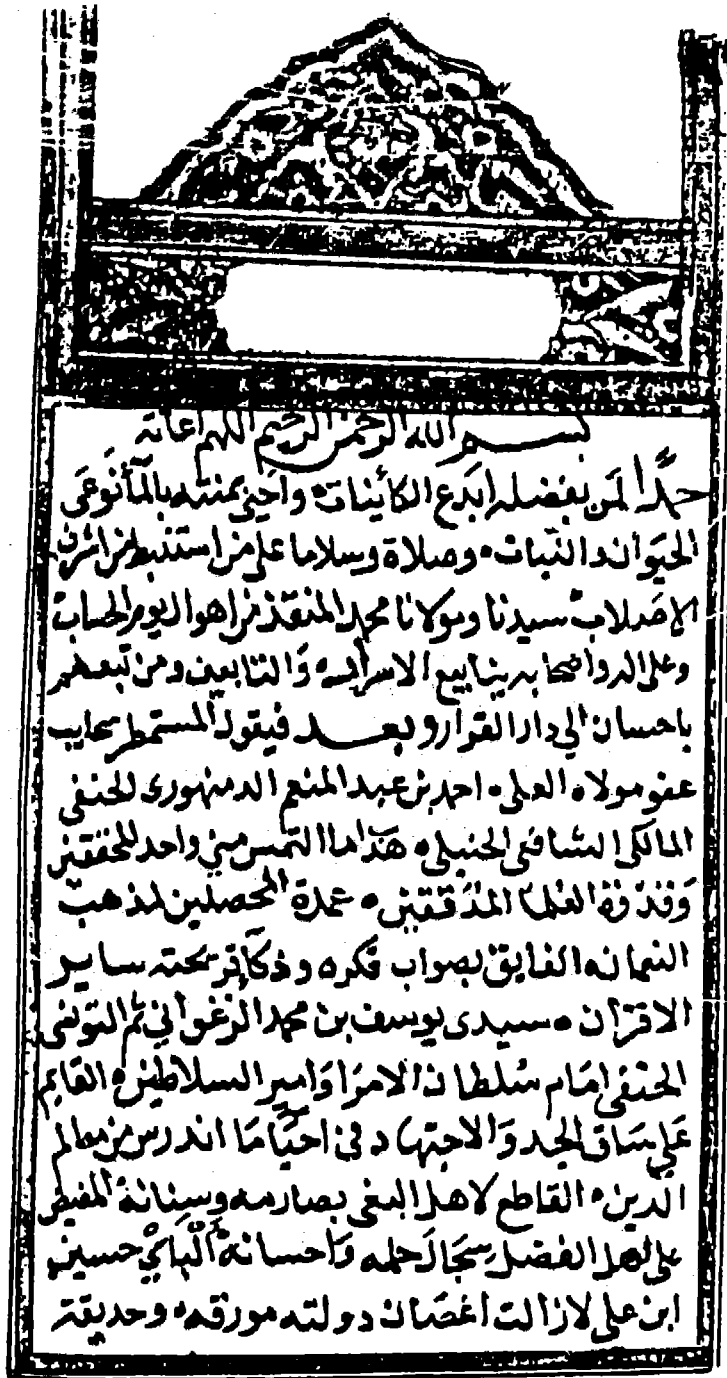 بسم الله الرحمن الرحيم اللهم اعانة
حمدا لمن بفضله ابدع الكائينات واحيى بمنته بالما نوعى
الحيوان والنبات وصلاة وسلاما على من استنبط من اشرف
الاصلاب سيدنا ومولانا محمد المنقذ من اهوال يوم الحساب
وعلى اله واصحابه ينابيع الاسرار والتابعين ومن تبعهم
باحسان الى دار القرار وبعد فيقول المستمطر سحايب
عفو مولاه العلى احمد بن عبد المنعم الدمنهورى الحنفى
المالكى الشافعى الحنبلى هذا ما التمس منى واحد المحققين
وقدوة العلما المدققين عمدة المحصلين لمذهب
النعمان الفايق بصواب فكره وذكا قريحته ساير
الاقران سيدى يوسف بن محمد الزغوانى ثم التونسى
الحنفى امام سلطان الامرا وامير السلاطين القايم
على ساق الجد والاجتهاد فى احيا ما اندرس من معالم
الدين القاطع لاهل البغى بصارمه وسنانه المفيض
على اهل الفضل سجال حلمه واحسانه الباي حسين
ابن على لازالت اغصان دولته مورقه وحديقة